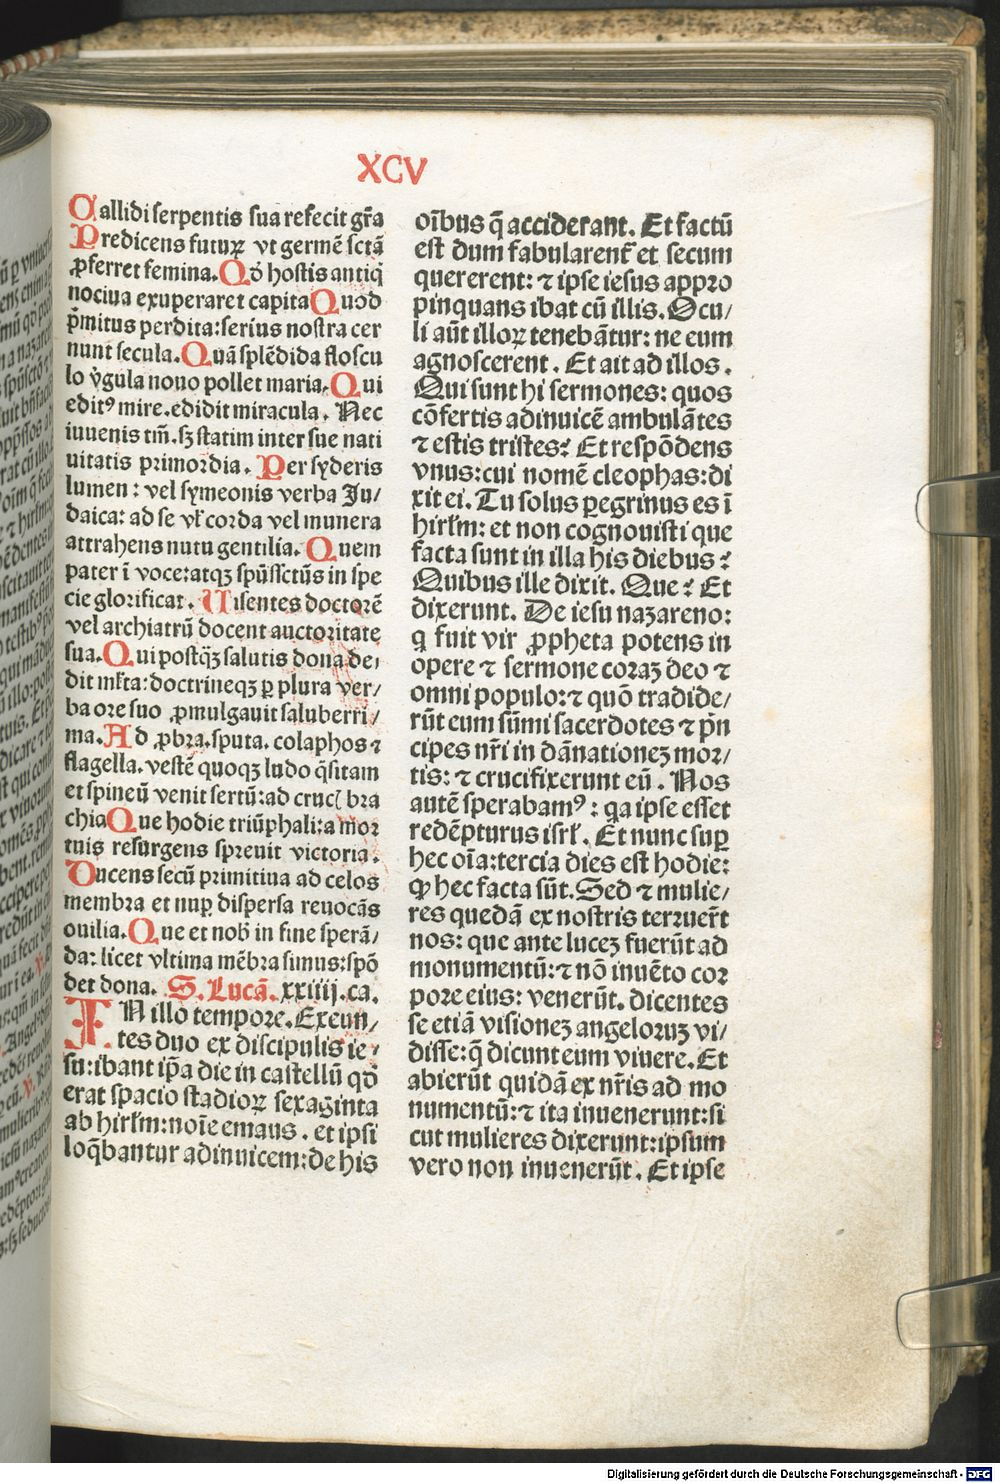 XCV
Callidi serpentis sua refecit gr̄a
Predicens futurꝝ vt germē sctā
ꝓferret femina. Qđ hostis antiq̄
nociua exuperaret capita Quod
p̄mitus perdita: serius nostra cer
nunt secula. Quā splēdida floscu
lo v̓gula nouo pollet maria. Qui
editꝰ mire. edidit miracula. Nec
iuuenis tm̄. sꝫ statim inter sue nati
uitatis primordia. Per syderis
lumen: vel symeonis verba Ju/
daica: ad se vł corda vel munera
attrahens nutu gentilia. Quem
pater ī voce: atqꝫ spūssctūs in spe
cie glorificat. Uisentes doctorē
vel archiatrū docent auctoritate
sua. Qui postqꝫ salutis dona de/
dit mł̓ta: doctrineqꝫ ꝑ plura ver/
ba ore suo ꝓmulgauit saluberri/
ma. Ad ꝓbra. sputa. colaphos ⁊
flagella. vestē quoqꝫ ludo q̄sitam
et spineū venit sertū: ad cruc[ bra
chia Que hodie triūphali: a mor
tuis resurgens spreuit victoria.
Ducens secū primitiua ad celos
membra et nuꝑ dispersa reuocās
ouilia. Que et nob̄ in fine sperā/
da: licet vltima mēbra sumus: spō
det dona. S. Lucā. xxiiij. ca.
IN illo tempore. Exeun/
tes duo ex discipulis ie/
su: ibant ip̄a die in castellū qđ
erat spacio stadioꝝ sexaginta
ab hirłm: noīe emaus. et ipsi
loq̄bantur adinuicem: de his
oībus q̄ acciderant. Et factū
est dum fabularent̄ et secum
quererent: ⁊ ipse iesus appro
pinquans ibat cū illis. Ocu/
li aūt illoꝝ tenebātur: ne eum
agnoscerent. Et ait ad illos.
Qui sunt hi sermones: quos
cōfertis adinuicē ambulātes
⁊ estis tristes? Et respōdens
vnus: cui nomē cleophas: di
xit ei. Tu solus ꝑegrinus es ī
hirłm: et non cognouisti que
facta sunt in illa his diebus?
Quibus ille dixit. Que? Et
dixerunt. De iesu nazareno:
q̄ fuit vir ꝓpheta potens in
opere ⁊ sermone coraꝫ deo ⁊
omni populo: ⁊ quō tradide/
rūt eum sūmi sacerdotes ⁊ p̄n
cipes nr̄i in dānationeꝫ mor/
tis: ⁊ crucifixerunt eū. Nos
autē sperabamꝰ: qa ipse esset
redēpturus isrł. Et nunc suꝑ
hec oīa: tercia dies est hodie:
ꝙ hec facta sūt. Sed ⁊ mulie/
res quedā ex nostris terruer̄t
nos: que ante luceꝫ fuerūt ad
monumentū: ⁊ nō inuēto cor
pore eius: venerūt. dicentes
se etiā visioneꝫ angeloruꝫ vi/
disse: q̄ dicunt eum viuere. Et
abierūt quidā ex nr̄is ad mo
numentū: ⁊ ita inuenerunt: si
cut mulieres dixerunt: ipsum
vero non inuenerūt. Et ipse
Digitalisierung gefördert durch die Deutsche Forschungsgemeinschaft - DFG